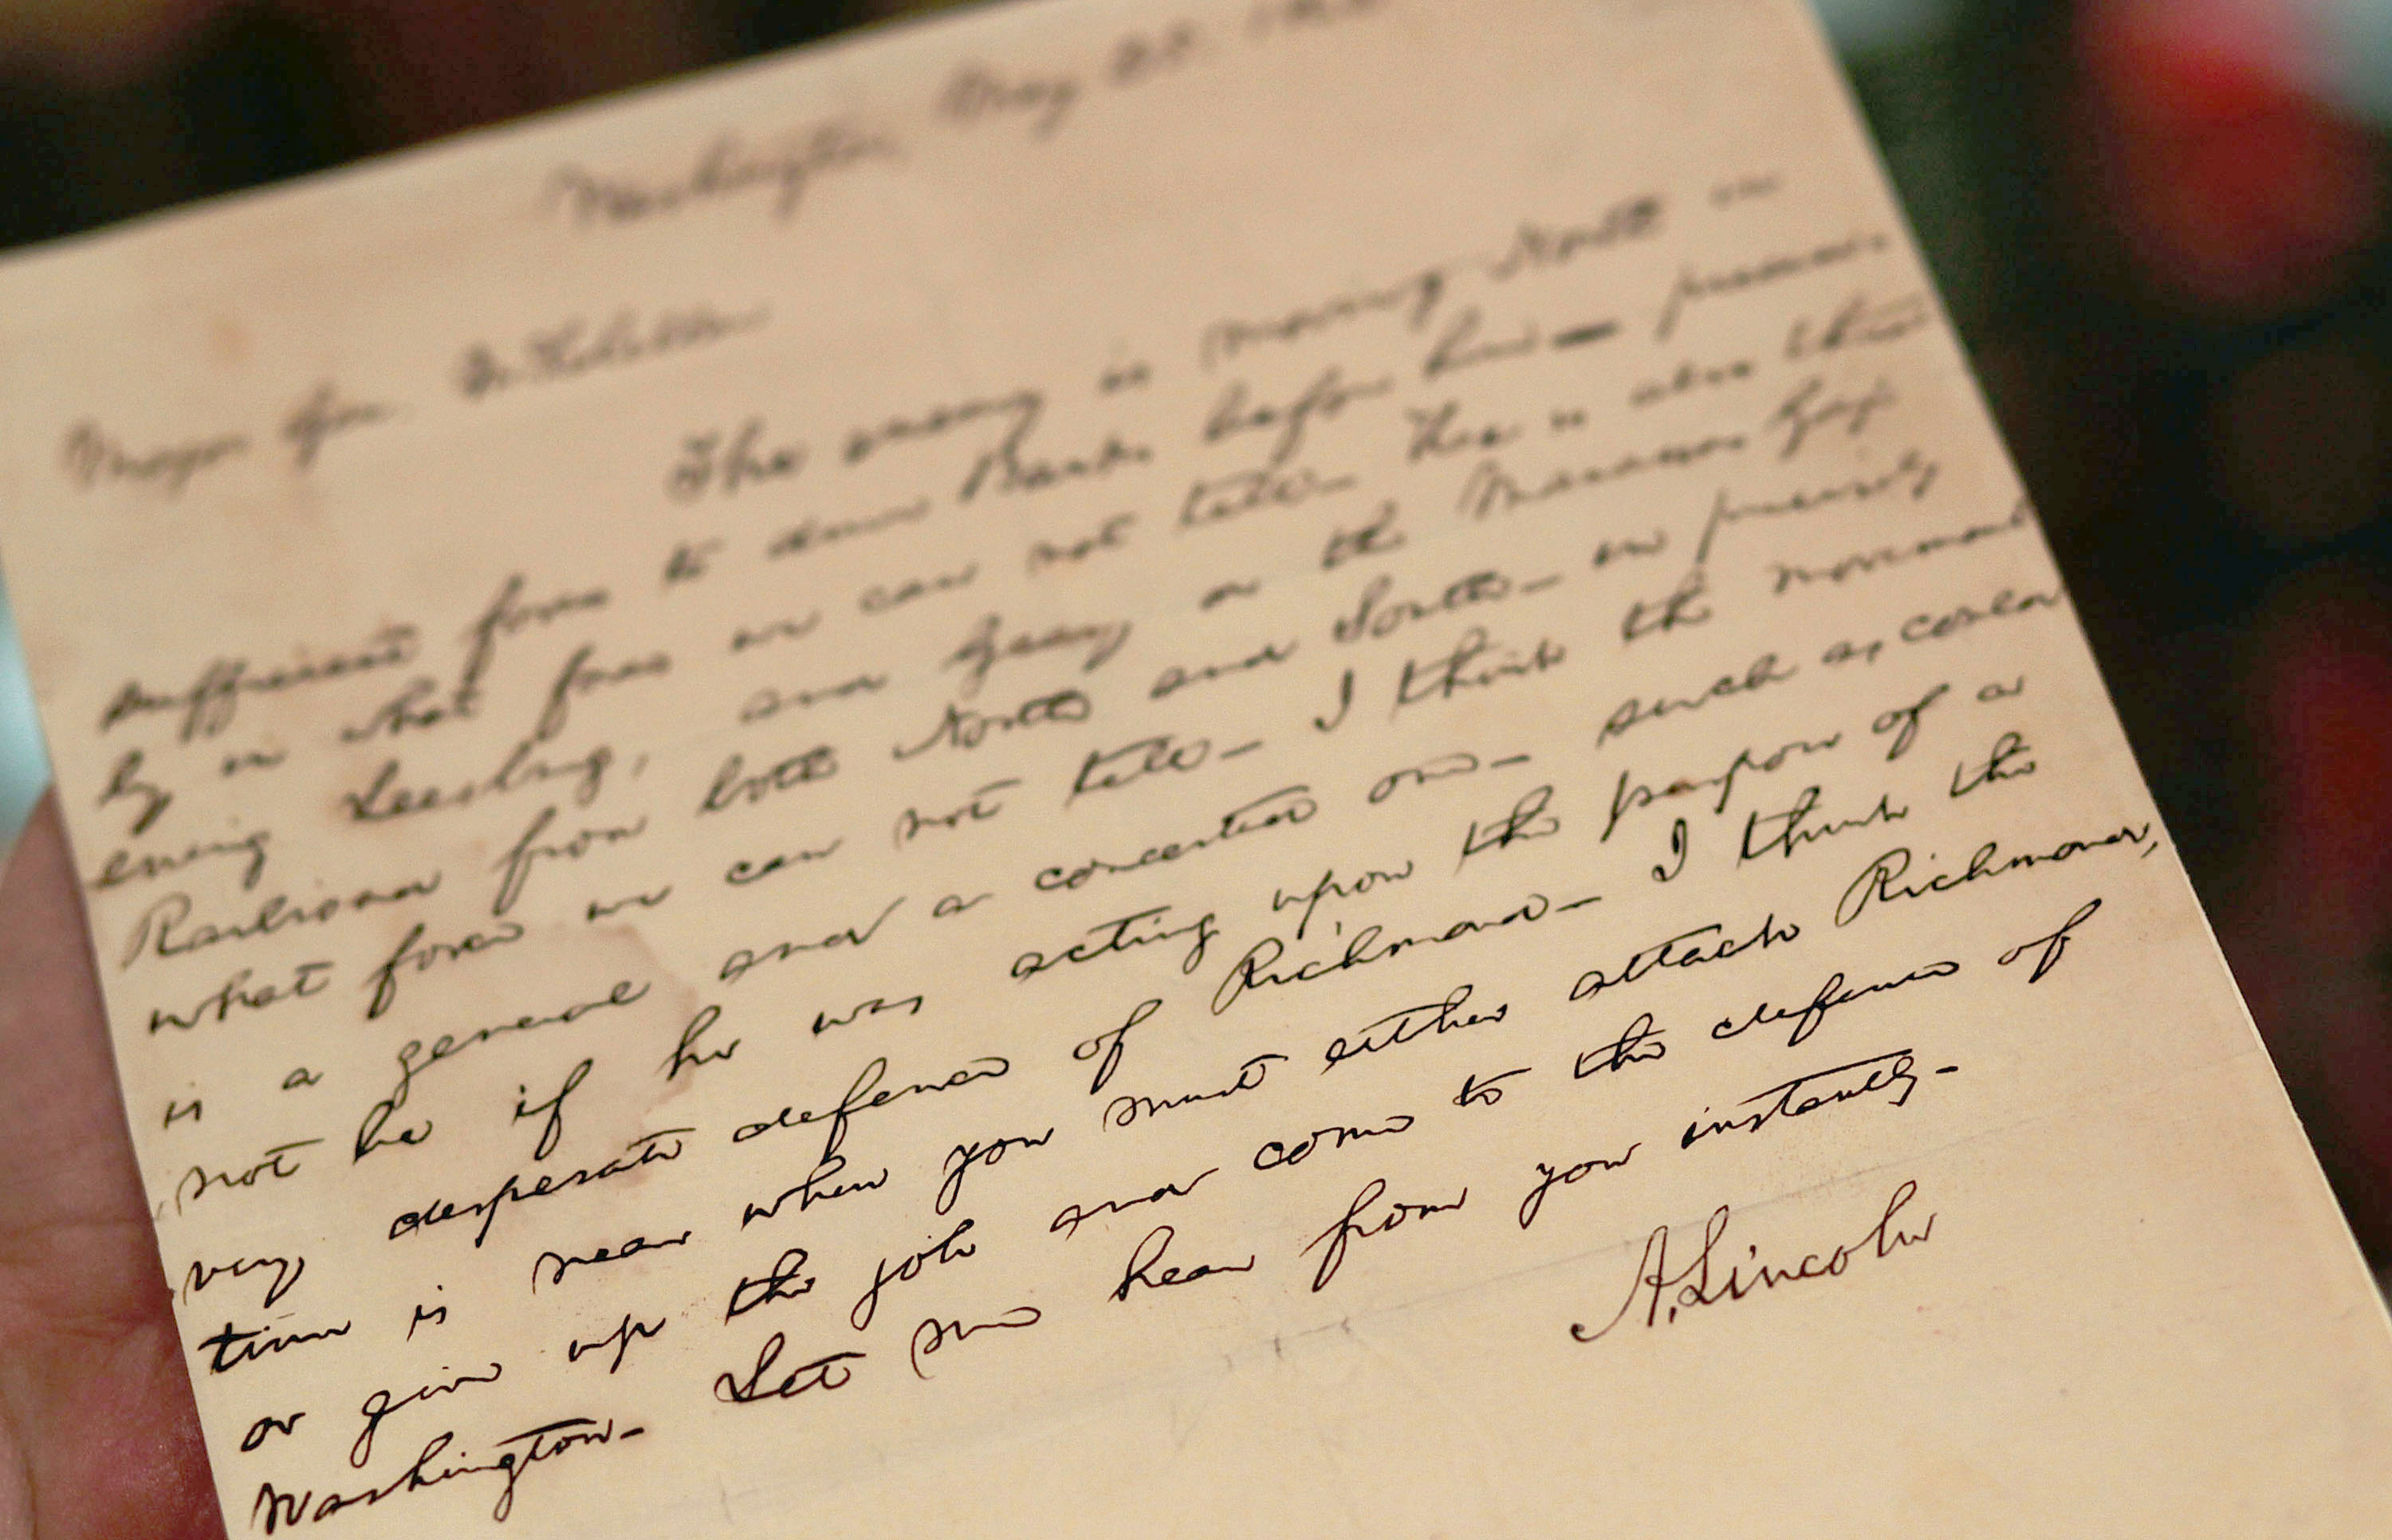 Washington, May 25. 186
Major Gen. McClellan
The enemy is moving North in
sufficient force to drive Banks before him — precise-
ly in what force we can not tell— He is also threat
ening Leesburg, and Geary on the Manassas Gap
Railroad from both North and South— in precisely
what force we can not tell— I think the movement
is a general and a concerted one— such as could
not be if he was acting upon the purpose of a
very desperate defence of Richmond— I think the
time is near when you must either attack Richmond,
or give up the job and come to the defence of
Washington— Let me hear from you instantly—
A. Lincoln